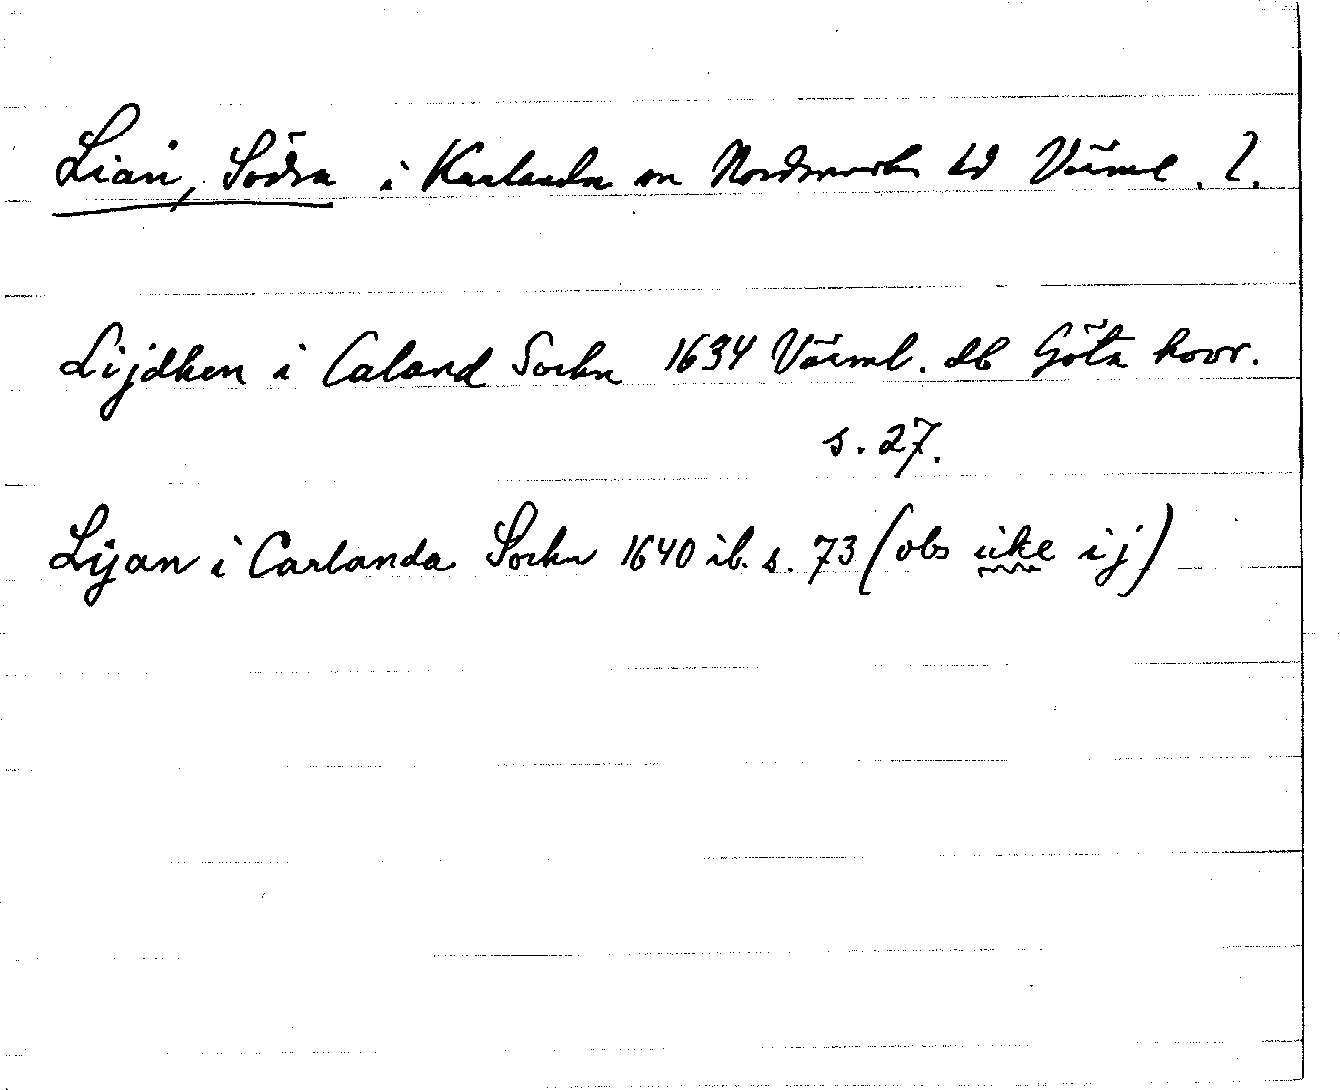 Lian, Södra i Karlanda sn Nordmarks hd Värml. l.
Lijdhen i Caland Sockn 1634 Värml. db Göta hovr.
s. 27.
Lijan i Carlanda Sockn 1640 ib. s. 73 (obs icke ij)